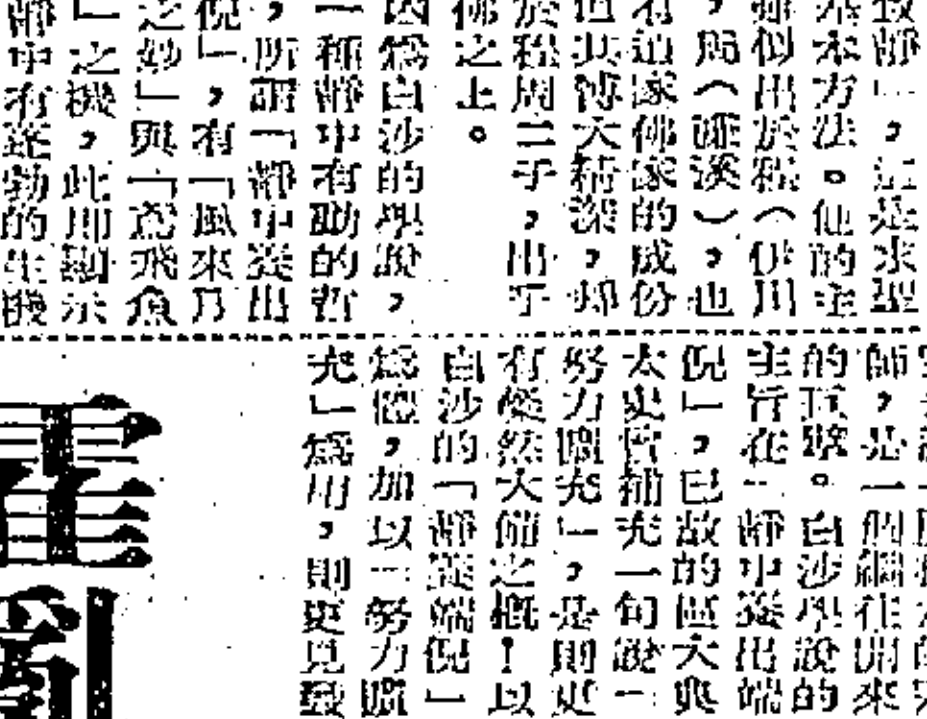 致靜」，這是求聖
本方法。他的主
雖似出於程（伊川
，周（濂溪），也
有道家佛家的成份
但其博大精深，却
於程周二子，出乎
佛之上。
因爲白沙的學說，
一種靜中有動的哲
，所謂「靜中養出
倪」，有「風來乃
之妙」與「鳶飛魚
」之機，此即顯示
靜中有蓬勃的生機
師，是一個繼往開來
的巨擘。白沙學說的
主旨在「靜中養出端
倪」，已故的區大典
太史曾補充一句說「
努力擴充」，是則更
有燦然大備之概！以
白沙的「靜養端倪」
爲體，加以「努力擴
充」爲用，則更見發